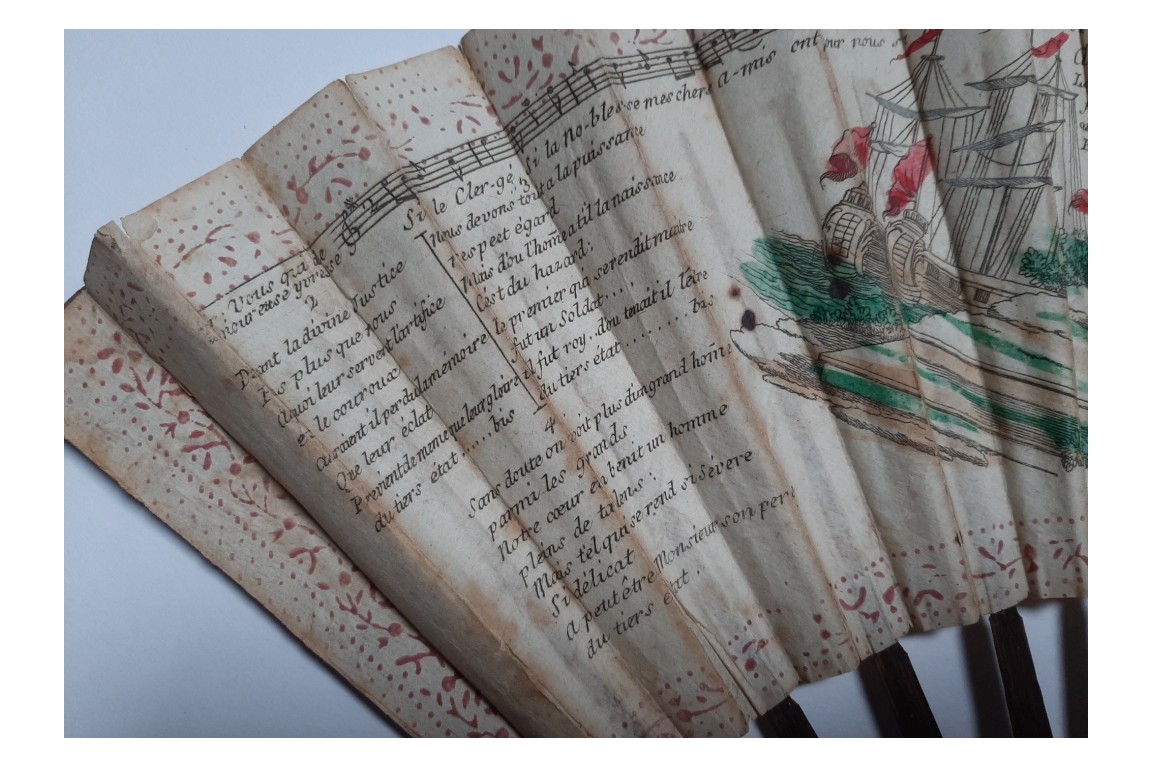 Si le Cler-ge, si la no-bles-se mes chers a-mis ont pour nous
I. Vous qui de
2
Devant la divine Justice
Pas plus que nous
Quoi leur servent l'artifice
et le couroux
auraient il perdu la mémoire
Que leur éclat
Previent de meme que leur gloire
du tiers état .... bis
3
Nous devons tout a la puissance
respect égard
Mais d'ou l'home a t il la naissance
C'est du hazard:
le premier qui se rendit maitre
fut un Soldat....
il fut roy. d'ou tenait il l'être
du tiers état ........ bis
4
Sans doute on voit plus d'un grand home
parmi les grands
Notre cœur en benit un homme
pleins de talens:
Mais tel qui se rend si sévere
Si délicat
a peut être Monsieur son pere
du tiers etat.